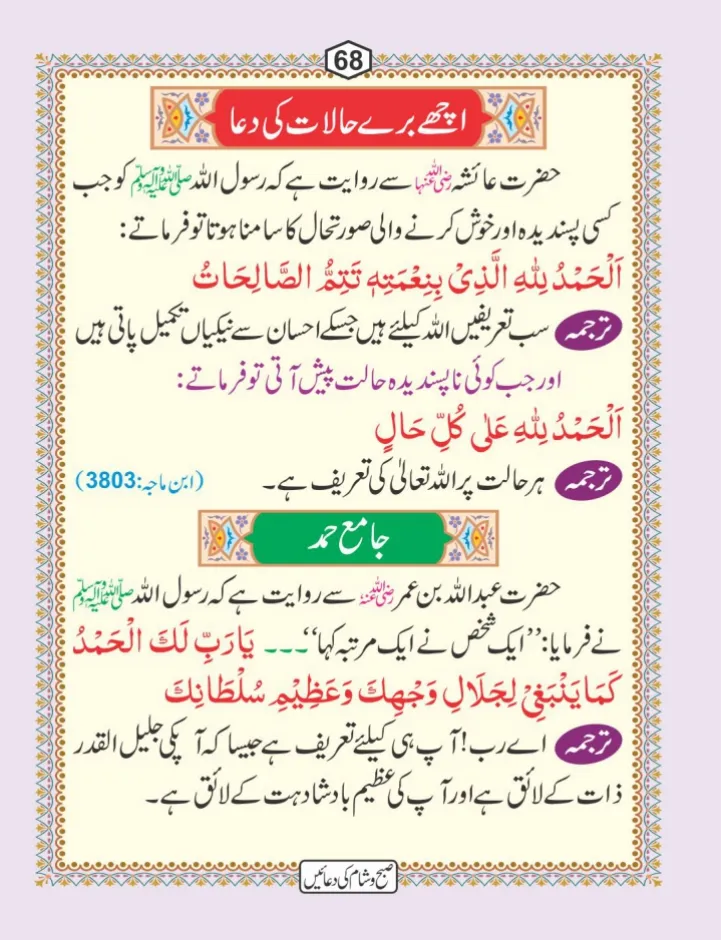 68
اچھے برے حالات کی دعا
حضرت عائشہ رضی اللہ عنہا سے روایت ہے کہ رسول اللہ صلی اللہ علیہ وسلم کو جب
کسی پسندیدہ اور خوش کرنے والی صورتحال کا سامنا ہوتا تو فرماتے:
اَلْحَمْدُ لِلّٰهِ الَّذِیْ بِنِعْمَتِهٖ تَتِمُّ الصَّالِحَاتُ
ترجمہ سب تعریفیں اللہ کیلئے ہیں جسکے احسان سے نیکیاں تکمیل پاتی ہیں
اور جب کوئی ناپسندیدہ حالت پیش آتی تو فرماتے:
اَلْحَمْدُ لِلّٰهِ عَلٰی کُلِّ حَالٍ
ترجمہ ہر حالت پر اللہ تعالیٰ کی تعریف ہے۔ (ابن ماجہ:3803)
جامع حمد
حضرت عبداللہ بن عمر رضی اللہ عنہ سے روایت ہے کہ رسول اللہ صلی اللہ علیہ وسلم
نے فرمایا: ’’ایک شخص نے ایک مرتبہ کہا‘‘۔۔۔ یَارَبِّ لَكَ الْحَمْدُ
کَمَا یَنْبَغِیْ لِجَلَالِ وَجْهِكَ وَعَظِیْمِ سُلْطَانِكَ
ترجمہ اے رب! آپ ہی کیلئے تعریف ہے جیسا کہ آپکی جلیل القدر
ذات کے لائق ہے اور آپ کی عظیم بادشاہت کے لائق ہے۔
صبح و شام کی دعائیں